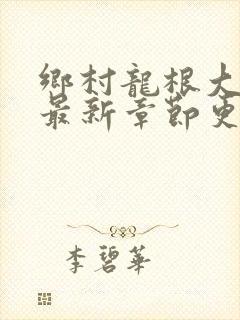 鄉村龍根大
最新章節更
李碧華